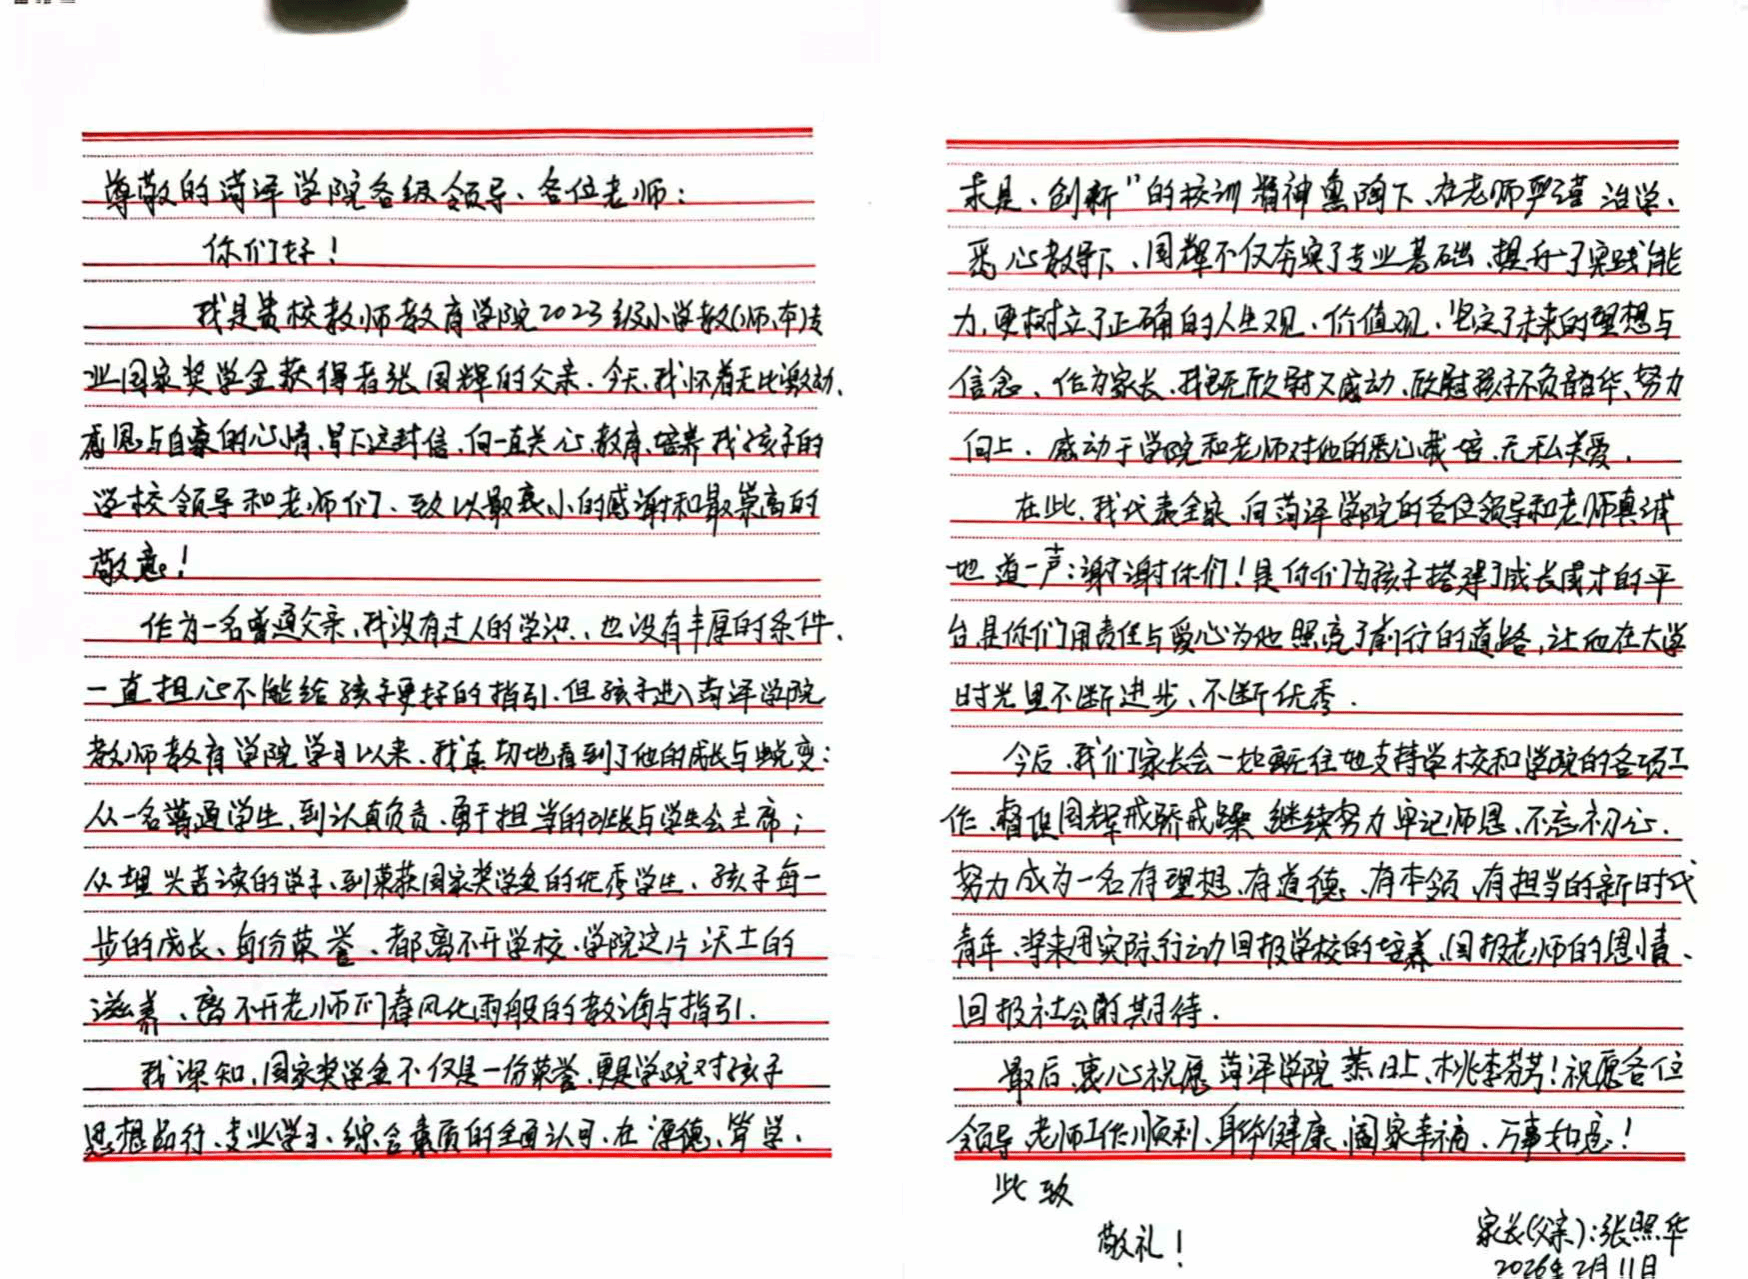 尊敬的菏泽学院各级领导、各位老师：
你们好！
我是贵校教师教育学院2023级小学教(师、本)专
业国家奖学金获得者张国辉的父亲。今天,我怀着无比激动、
感恩与自豪的心情,写下这封信,向一直关心、教育、培养我孩子的
学校领导和老师们、致以最衷心的感谢和最崇高的
敬意！
作为一名普通父亲,我没有过人的学识、也没有丰厚的条件、
一直担心不能给孩子更好的指引.但孩子进入菏泽学院
教师教育学院学习以来、我真切地看到了他的成长与蜕变：
从一名普通学生、到认真负责、勇于担当的班长与学生会主席；
从埋头苦读的学子、到荣获国家奖学金的优秀学生、孩子每一
步的成长、每份荣誉、都离不开学校、学院这片沃土的
滋养、离不开老师们春风化雨般的教诲与指引.
我深知,国家奖学金不仅是一份荣誉、更是学院对孩子
思想品行、专业学习、综合素质的全面认可、在"厚德、笃学、
求是、创新"的校训精神熏陶下、在老师严谨治学、
悉心教导下、国辉不仅夯实了专业基础、提升了实践能
力,更树立了正确的人生观、价值观、坚定了未来的理想与
信念、作为家长、我既欣慰又感动、欣慰孩子不负韶华、努力
向上、感动于学院和老师对他的悉心栽培、无私关爱.
在此,我代表全家,向菏泽学院的各位领导和老师真诚
地道一声:谢谢你们！是你们为孩子搭建了成长成才的平
台,是你们用责任与爱心为他照亮了前行的道路,让他在大学
时光里不断进步、不断优秀.
今后,我们家长会一如既往地支持学校和学院的各项工
作、督促国辉戒骄戒躁、继续努力,牢记师恩、不忘初心、
努力成为一名有理想、有道德、有本领、有担当的新时代
青年、将来用实际行动回报学校的培养、回报老师的恩情、
回报社会的期待.
最后,衷心祝愿菏泽学院蒸日上、桃李芬芳！祝愿各位
领导、老师工作顺利、身体健康、阖家幸福、万事如意！
此致
敬礼！
家长(父亲):张照华
2026年2月11日